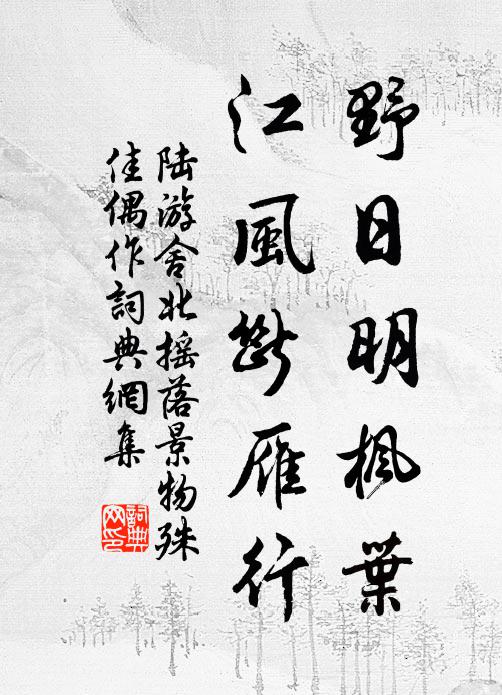 野日明枫葉
江風斷雁行
陆游舍北摇落景物殊
佳偶作詞典網集
詞典网印